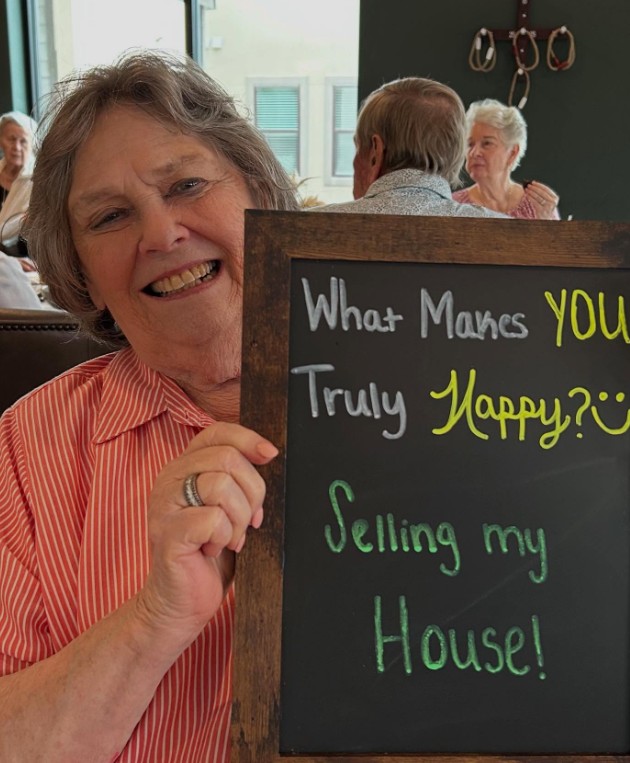 What Makes YOU
Truly Happy?
Selling my
House!